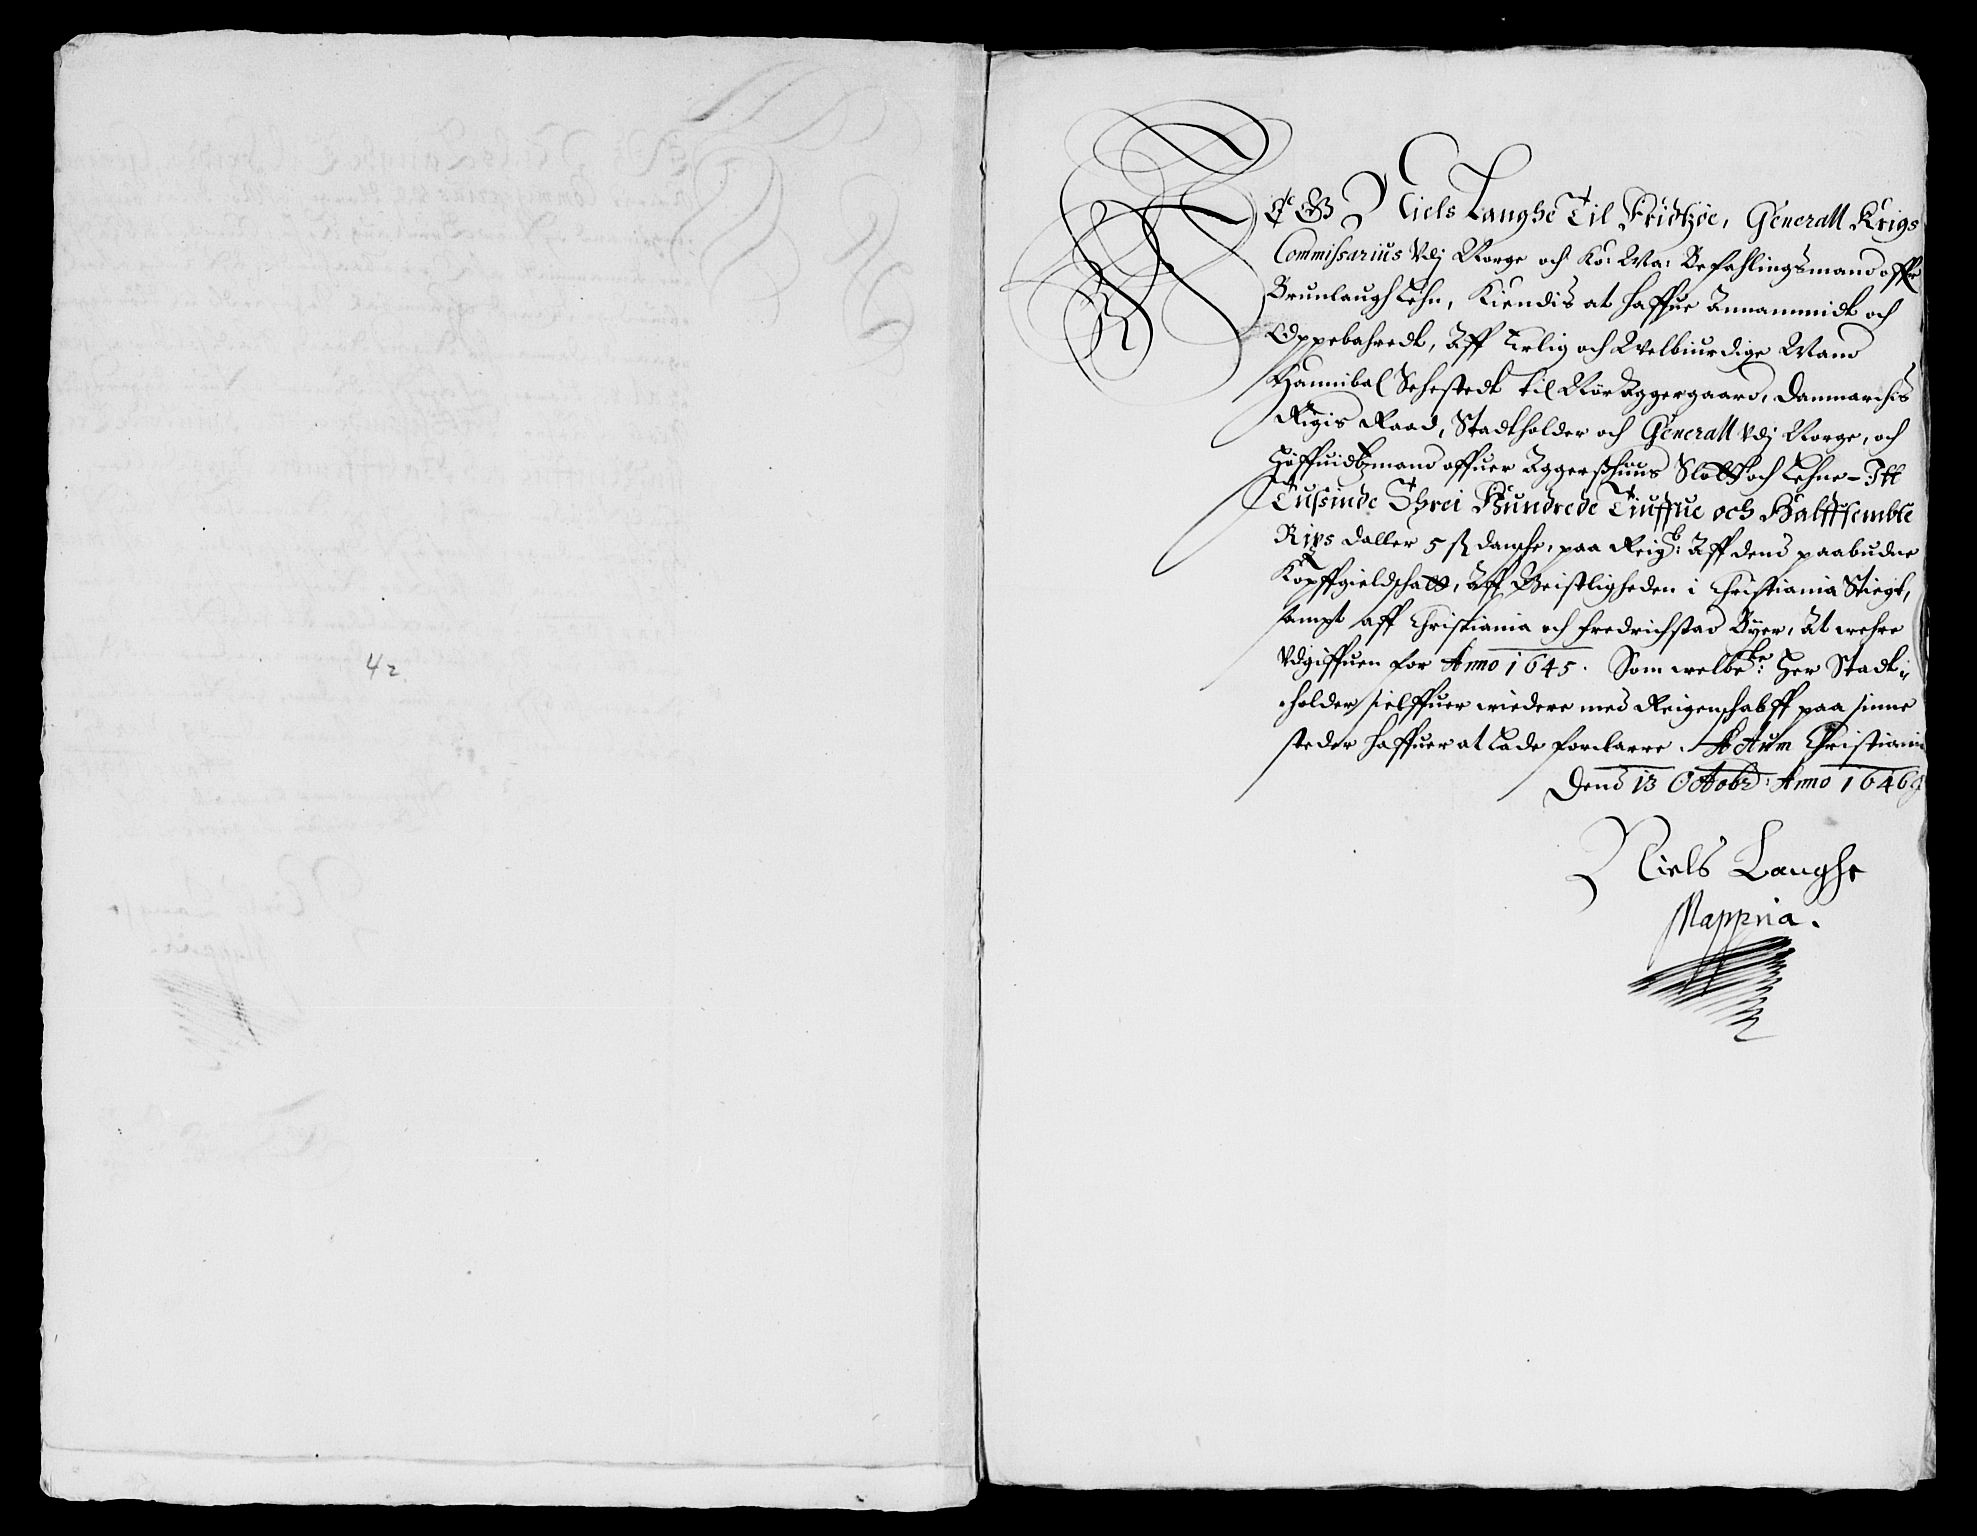 42
JEG Niels Langhe Til Fridtzøe, Generall Krigs
Commissarius Vdj Norge och Ko: Ma: Befahlingsmand offr
Brunlaugh Lehn, Kiendis at haffue Annammidt och
Oppebahredt, Aff Erlig och Welbiurdige Mand
Hannibal Sehestedt til Nør Aggergaard, Danmarchis
Rigis Raad, Stadtholder och Generall Vdj Norge, och
Høffuidtzmand offuer Aggershuus Slott och Lehne – Itt
Tusinde Threi Hundrede Tiuffue och Halfffemble
Rixs daller 5 ß danske, paa Reigb: Aff dend paabudne
Kopffgieldschatt, Aff Geistligheden i Christiania Stiegt,
sampt aff Christiania och Fredrichstad Byer, At wehre
Vdgiffuen for Anno 1645. Som welbte: Her Stadt-
holder sielffuer widere med Reigenschabff paa sinne
steder haffuer at Lade forclarre. Actum Christiania
Dend 13 Octobr: Anno 1646
Niels Langhe
Mappria.